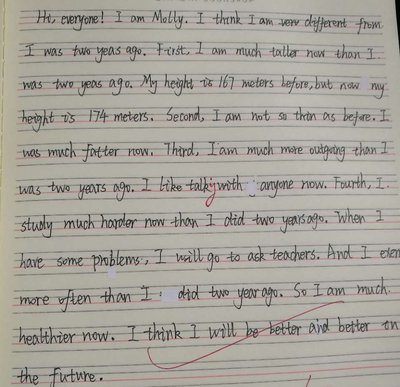 Hi, everyone! I am Molly. I think I am very different from
I was two yeas ago. First, I am much taller now than I
was two yeas ago. My height is 167 meters before, but now my
height is 174 meters. Second, I am not so thin as before. I
was much fatter now. Third, I am much more outgoing than I
was two years ago. I like talk with anyone now. Fourth, I
study much harder now than I did two years ago. When I
have some problems, I will go to ask teachers. And I even
more often than I did two year ago. So I am much
healthier now. I think I will be better and better on
the future.